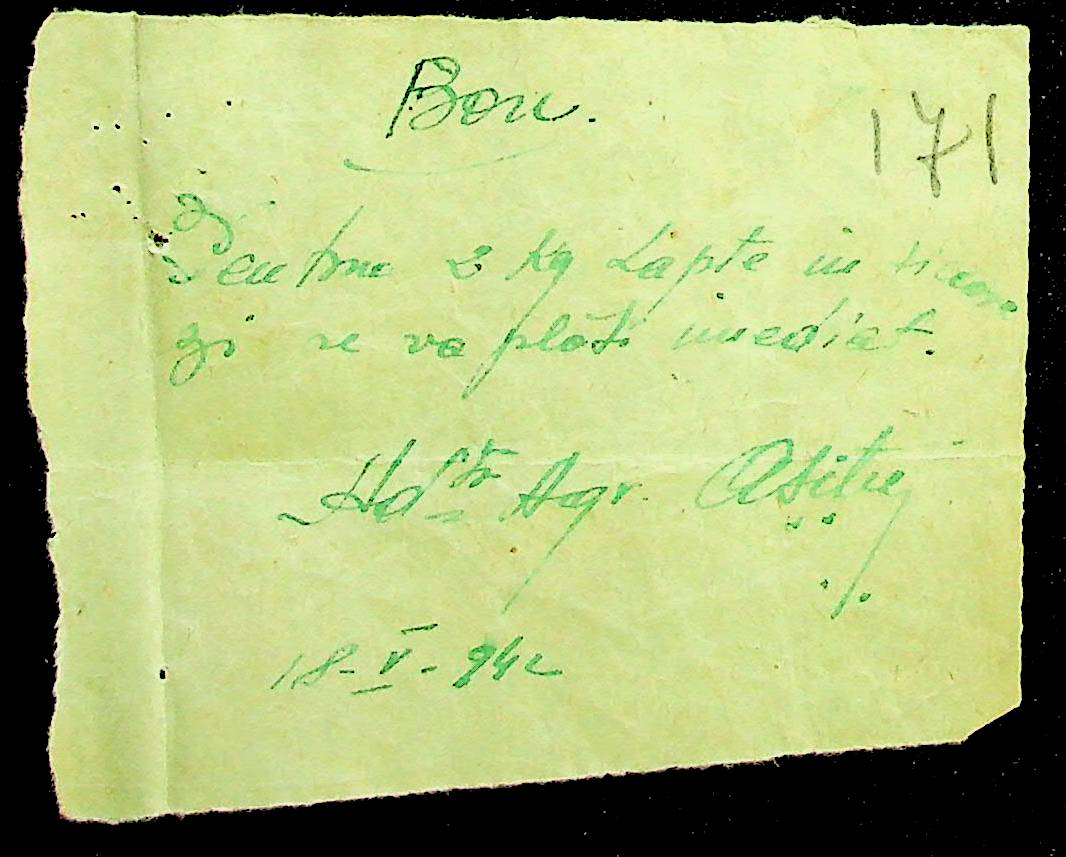 Bon.
171
Pentru 2 Kg Lapte in fiecare
zi se va plăti imediat.
Agr
18-V-942